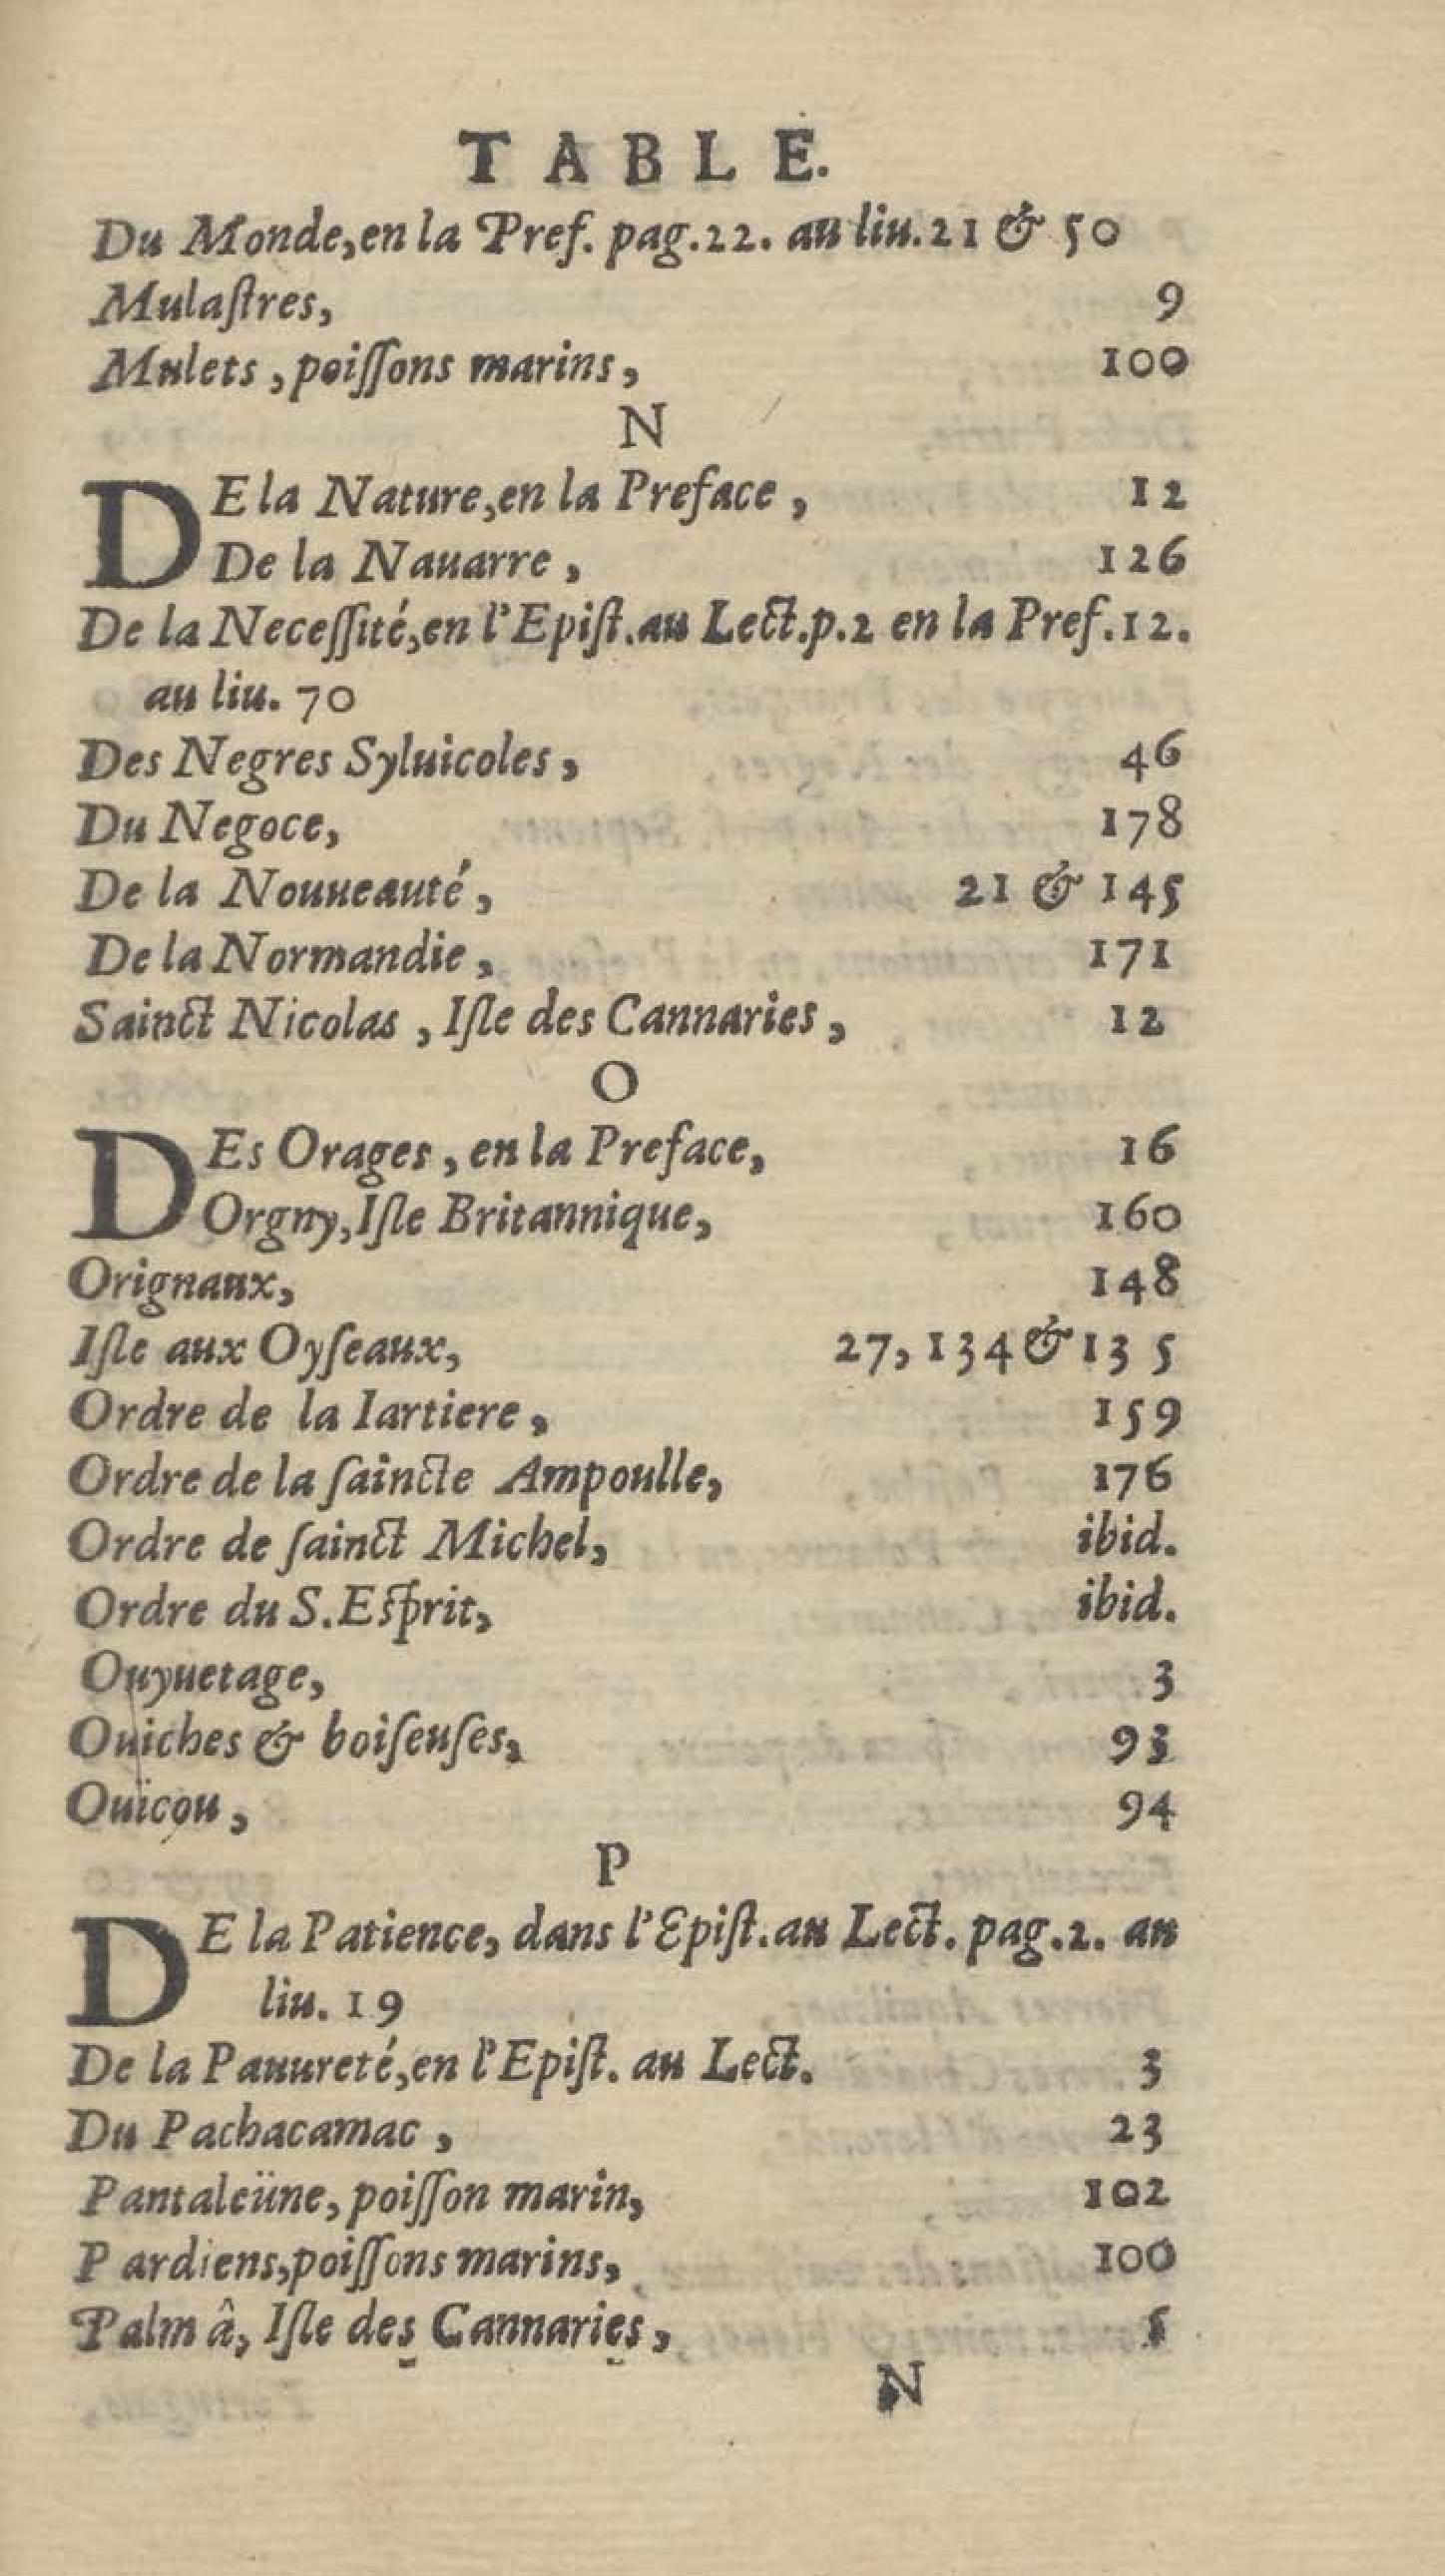 TABLE.
Du Monde, en la Pref. pag. 22. au liu. 21 & 50
Mulaſtres, 9
Mulets, poiſſons marins, 100
N
DE la Nature, en la Preface, 12
De la Nauarre, 126
De la Neceſſité, en l'Epiſt. au Lect. p. 2 en la Pref. 12.
au liu. 70
Des Negres Syluicoles, 46
Du Negoce, 178
De la Nouueauté, 21 & 145
De la Normandie, 171
Sainct Nicolas, Iſle des Cannaries, 12
O
DEs Orages, en la Preface, 16
Orgny, Iſle Britannique, 160
Orignaux, 148
Iſle aux Oyſeaux, 27, 134 & 135
Ordre de la Iartiere, 159
Ordre de la ſaincte Ampoulle, 176
Ordre de ſainct Michel, ibid.
Ordre du S. Eſprit, ibid.
Ouyuetage, 3
Ouiches & boiſeuſes, 93
Ouïcou, 94
P
DE la Patience, dans l'Epiſt. au Lect. pag. 2. au
liu. 19
De la Pauureté, en l'Epiſt. au Lect. 3
Du Pachacamac, 23
Pantaleüne, poiſſon marin, 102
Pardiens, poiſſons marins, 100
Palmâ, Iſle des Cannaries, 5
N